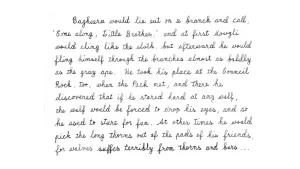 Bagheera would lie out on a branch and call,
'Come along, Little Brother,' and at first Mowgli
would cling like the sloth, but afterward he would
fling himself through the branches almost as boldly
as the gray ape. He took his place at the Council
Rock, too, when the Pack met, and there he
discovered that if he stared hard at any wolf,
the wolf would be forced to drop his eyes, and so
he used to stare for fun. At other times he would
pick the long thorns out of the pads of his friends,
for wolves suffer terribly from thorns and burs ...